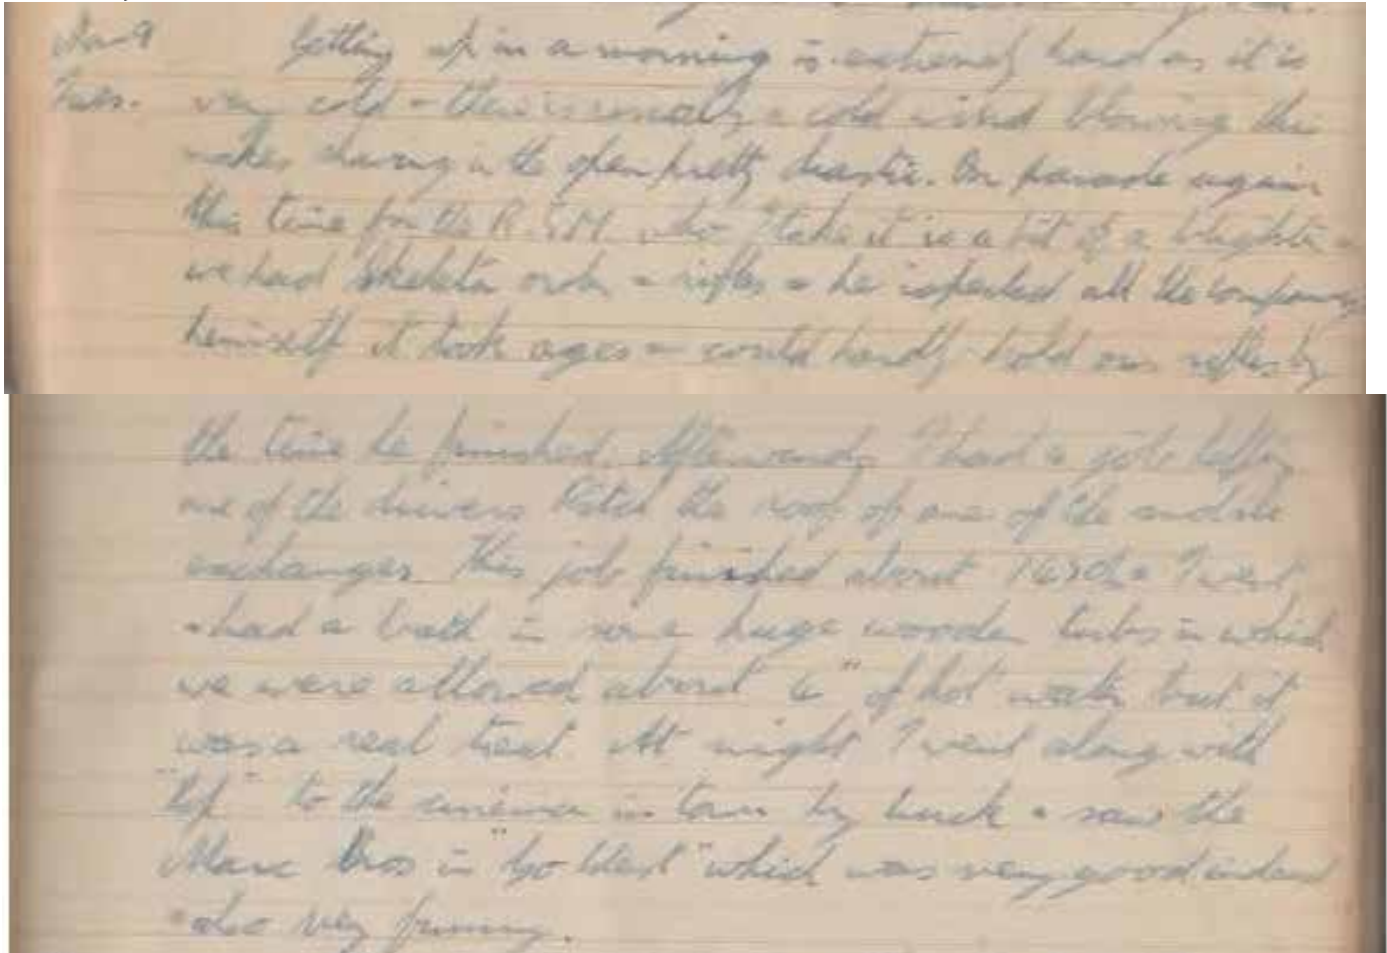 Jan 9 Getting up in a morning is extremely hard as it is
Tues. very cold + there is usually a cold wind blowing this
makes shaving in the open pretty drastic. On parade again
this time for the R.S.M. who I take it is a bit of a blighter +
we had skeleton order + rifles + he inspected all the company
himself it took ages + could hardly hold our rifles by
the time he finished. Afterwards I had a job helping
one of the drivers the roof of one of the mobile
exchanges. This job finished about 1630 + I went
+ had a bath in some huge wooden tubs in which
we were allowed about 6" of hot water but it
was a real treat. At night I went along with
to the cinema in town by truck + saw the
Marx Bros in "Go West" which was very good indeed
+ also very funny.